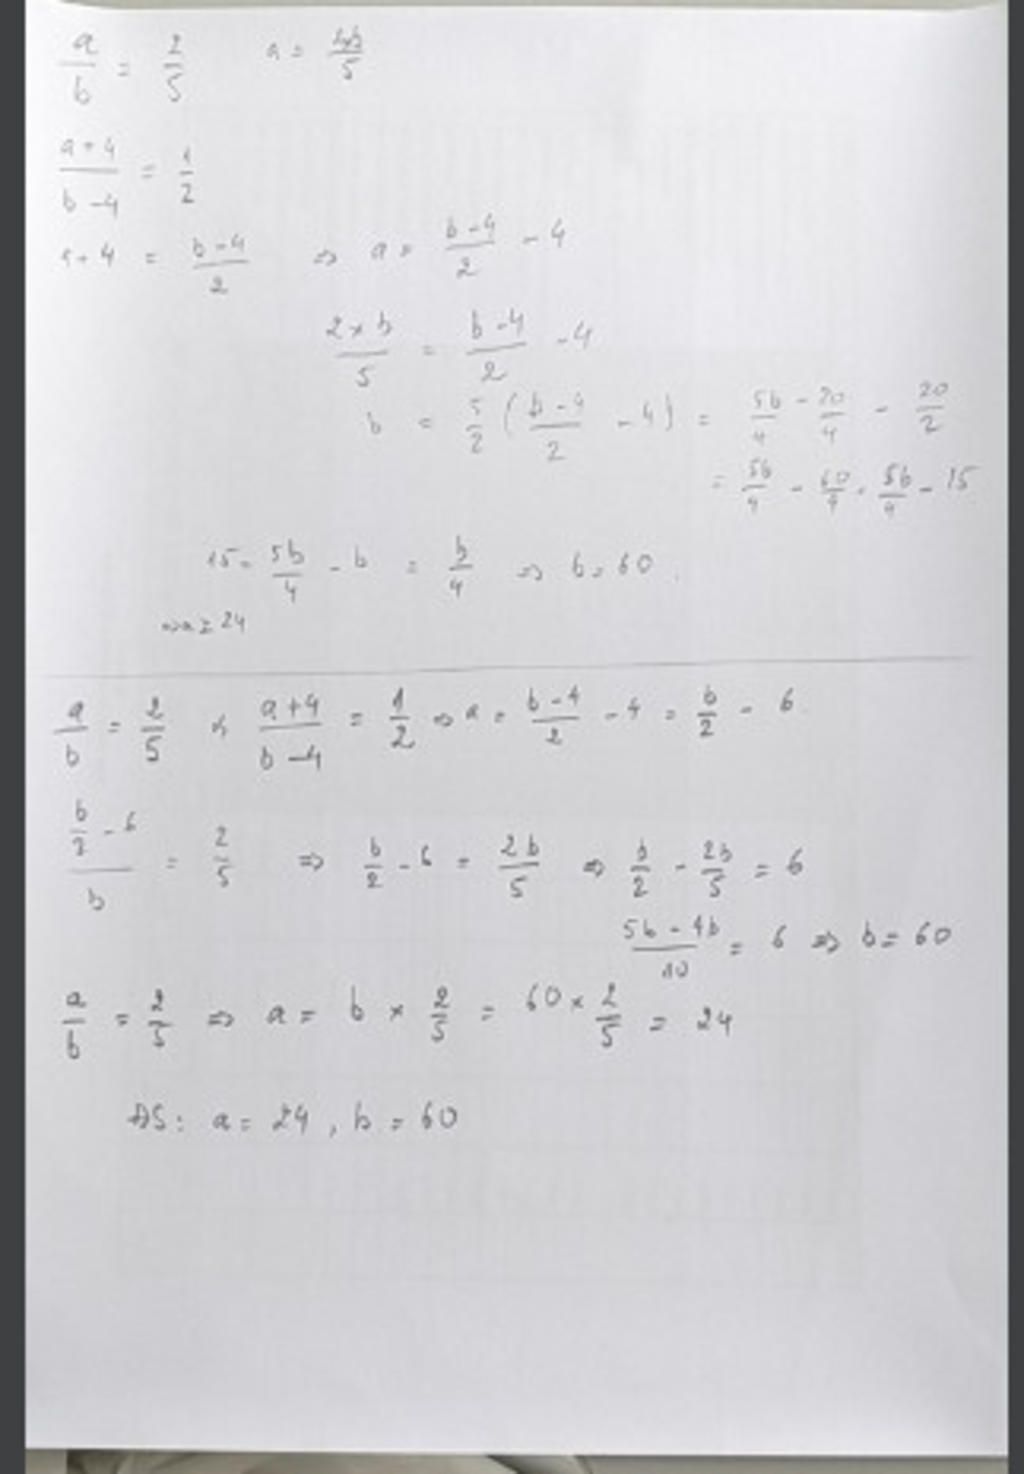 a/b = 2/5    a = 2b/5
(a+4)/(b-4) = 1/2
a+4 = (b-4)/2 ⇒ a = (b-4)/2 - 4
2×b/5 = (b-4)/2 - 4
b = 5/2 ( (b-4)/2 - 4 ) = 5b/4 - 20/4 - 20/2
= 5b/4 - 60/4 = 5b/4 - 15
15 = 5b/4 - b = b/4 ⇒ b = 60.
⇒ a = 24
a/b = 2/5 & (a+4)/(b-4) = 1/2 ⇒ a = (b-4)/2 - 4 = b/2 - 6.
(b/2 - 6)/b = 2/5 ⇒ b/2 - 6 = 2b/5 ⇒ b/2 - 2b/5 = 6
(5b - 4b)/10 = 6 ⇒ b = 60
a/b = 2/5 ⇒ a = b × 2/5 = 60 × 2/5 = 24
ĐS: a = 24, b = 60